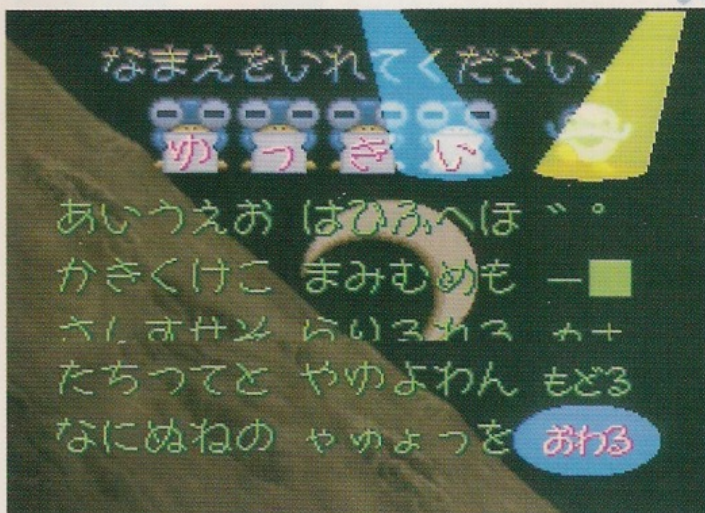 なまえをいれてください。
ゆ っ き い
あいうえお はひふへほ ゛ ゜
かきくけこ まみむめも ー
さしすせそ らりるれろ
たちつてと やゆよわん もどる
なにぬねの ゃゅょっを おわる